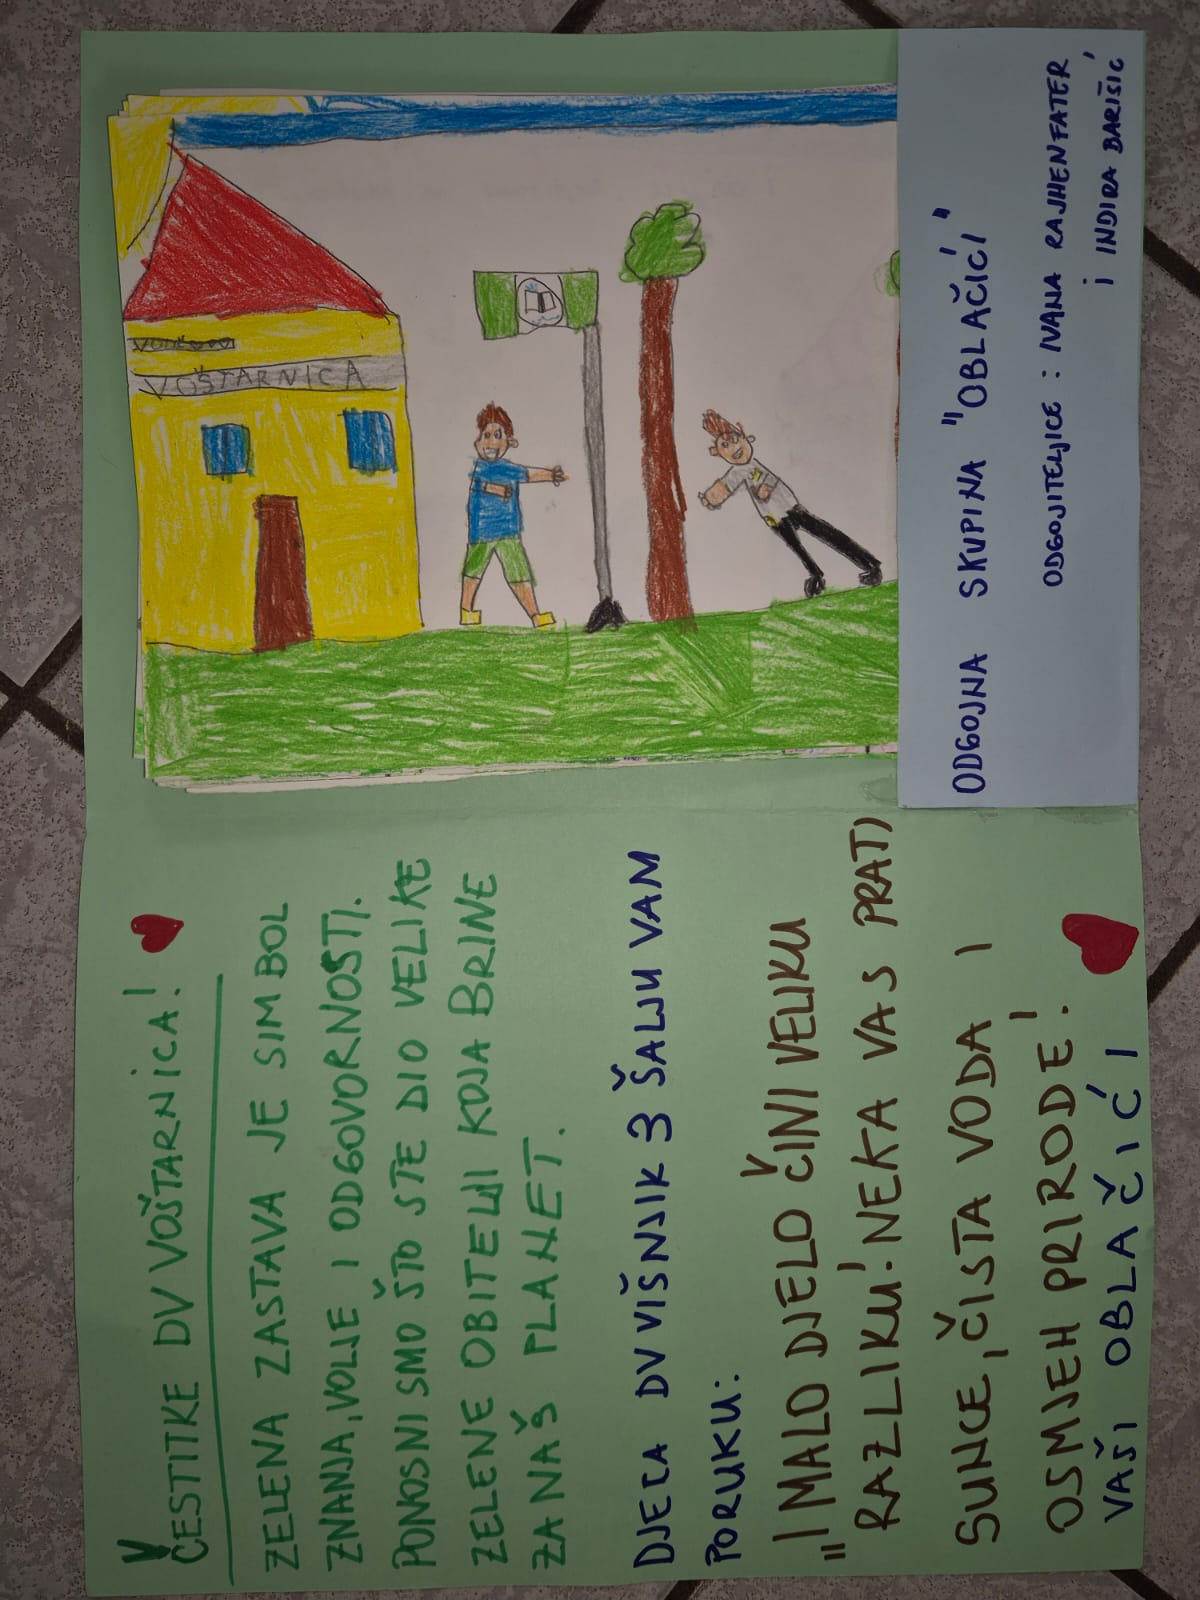 ČESTITKE DV VOŠTARNICA!
ZELENA ZASTAVA JE SIMBOL
ZNANJA, VOLJE I ODGOVORNOSTI.
PONOSNI SMO ŠTO STE DIO VELIKE
ZELENE OBITELJI KOJA BRINE
ZA NAŠ PLANET.
DJECA DV VIŠNJIK 3 ŠALJU VAM
PORUKU:
"I MALO DJELO ČINI VELIKU
RAZLIKU! NEKA VAS PRATI
SUNCE, ČISTA VODA I
OSMJEH PRIRODE!
VAŠI OBLAČIĆI
VOŠTARNICA
ODGOJNA SKUPINA "OBLAČIĆI"
ODGOJITELJICE: IVANA RAJHENFATER
i INDIRA BARIŠIĆ